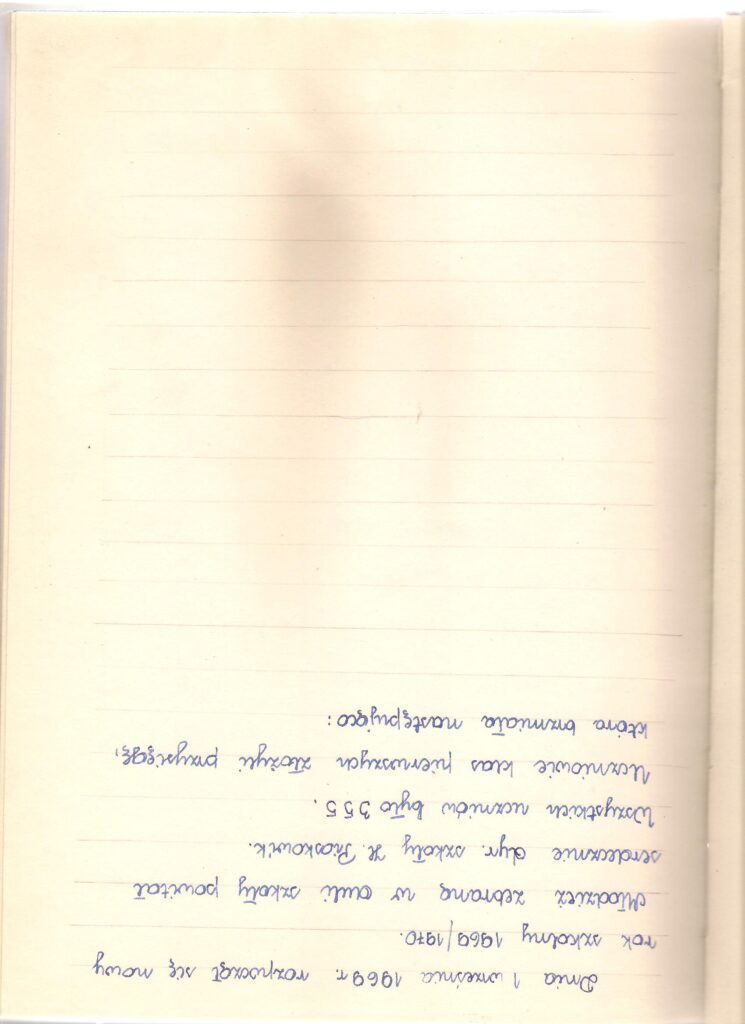 Dnia 1 września 1969 r. rozpoczął się nowy
rok szkolny 1969/1970.
Młodzież zebraną w auli szkoły powitał
serdecznie dyr. szkoły H. Piaskowik.
Wszystkich uczniów było 355.
Uczniowie klas pierwszych złożyli przysięgę,
która brzmiała następująco: